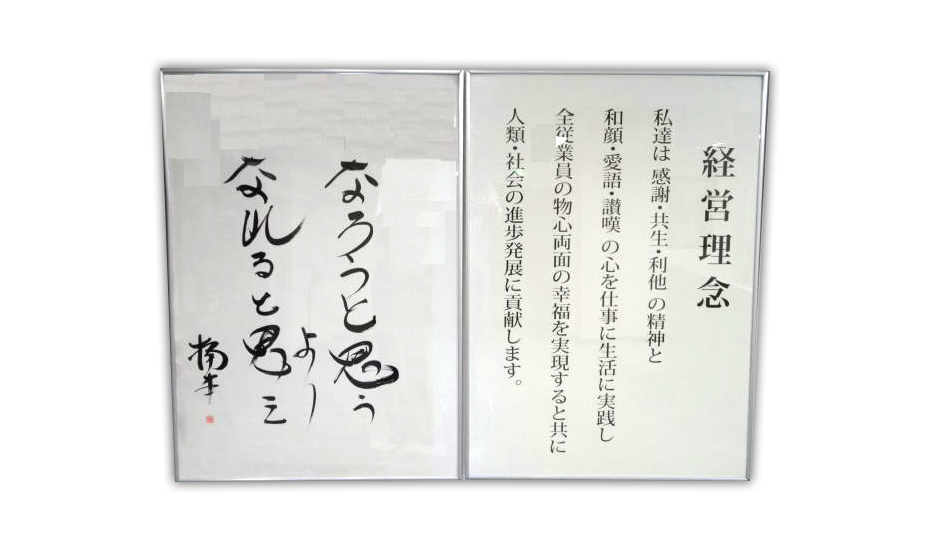 経営理念
私達は 感謝・共生・利他 の精神と
和顔・愛語・讃嘆 の心を仕事に生活に実践し
全従業員の物心両面の幸福を実現すると共に
人類・社会の進歩発展に貢献します。
なろうと思う
より
なれると思え